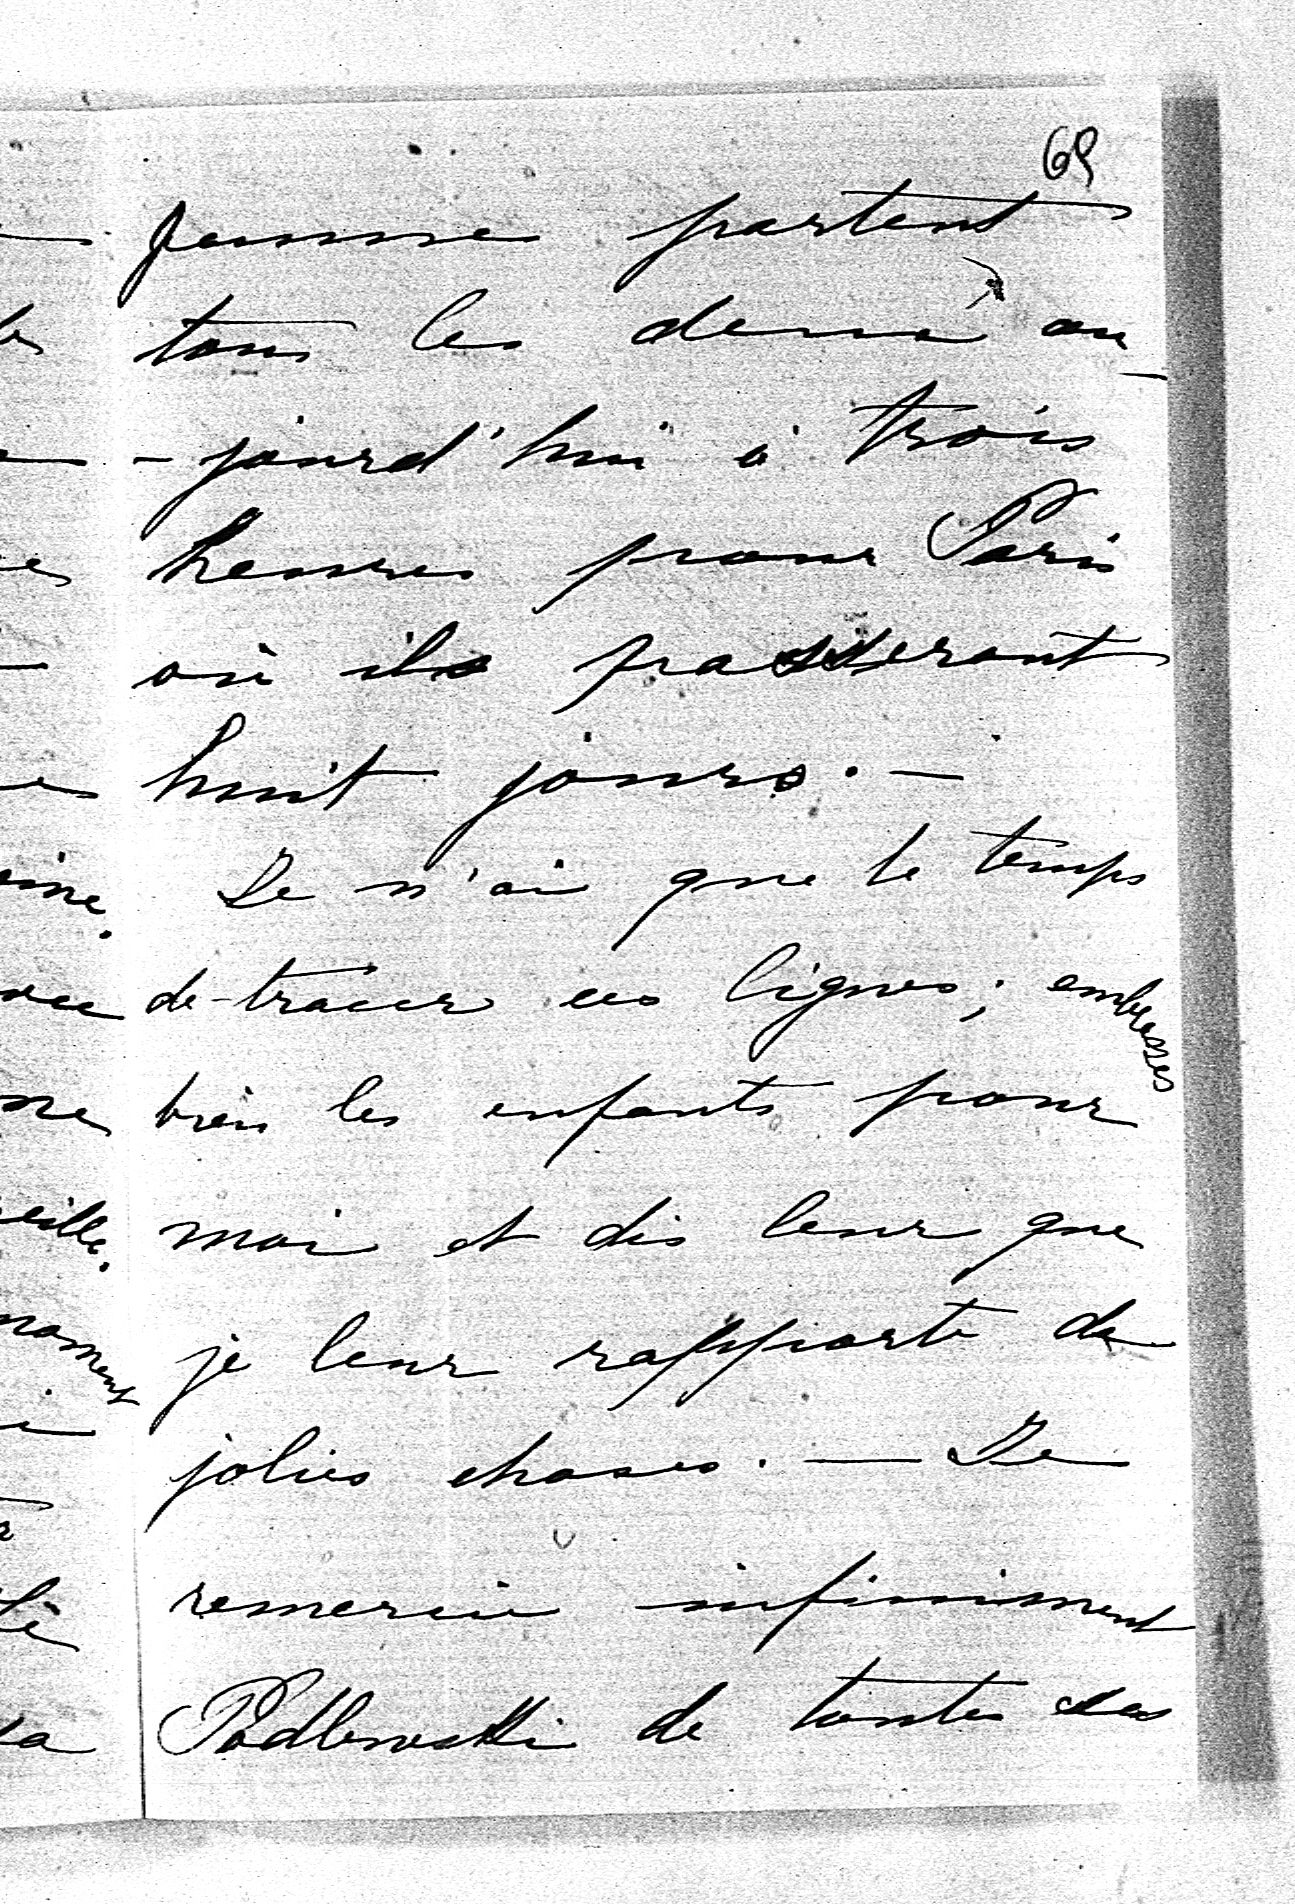 69
femme partent
tous les deux au
-jourd'hui à trois
heures pour Paris
où ils passeront
huit jours. —
Je n'ai que le temps
de tracer ces lignes; embrasses
bien les enfants pour
moi et dis leur que
je leur rapporte de
jolies choses. — Je
remercie infiniment
Podlewski de toutes ses